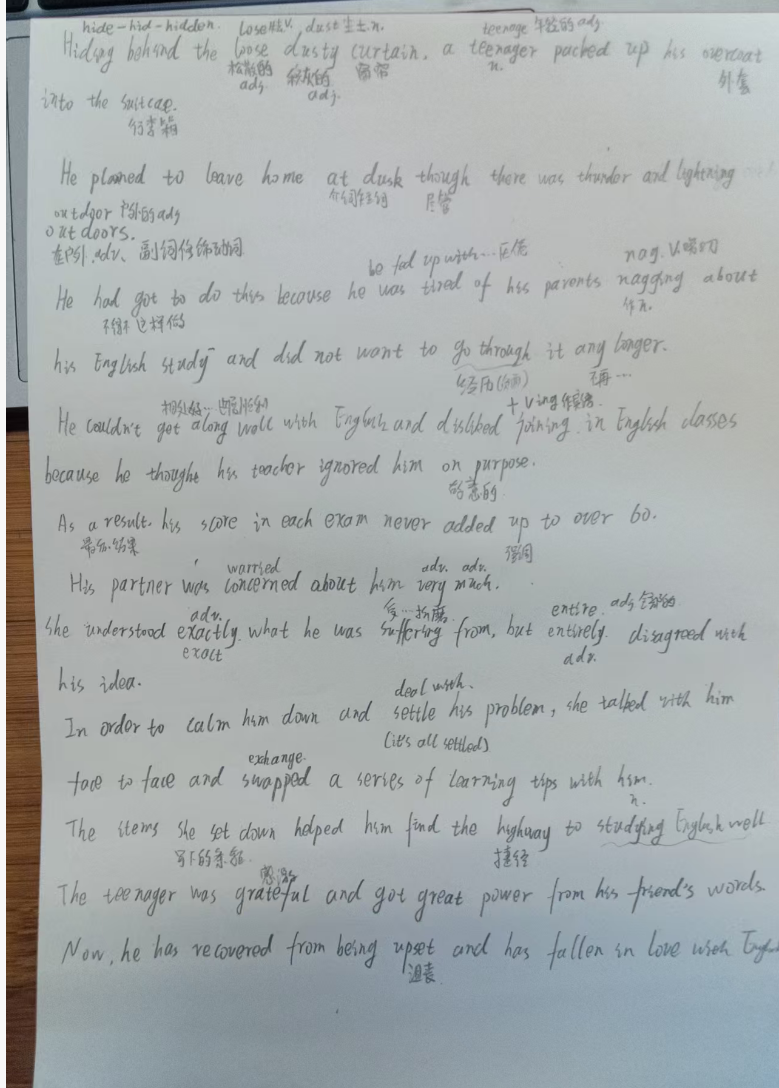 hide-hid-hidden. lose v. dust 尘土 n. teenage 年轻的 adj
Hiding behind the loose dusty curtain, a teenager packed up his overcoat
松散的 adj. adj. 窗帘 n. 外套
into the suitcase.
行李箱
He planned to leave home at dusk though there was thunder and lightning
尽管
outdoor 户外的 adj
outdoors.
在户外 adv. 副词修饰动词
be fed up with... nag. v. 唠叨
He had got to do this because he was tired of his parents nagging about
不得不这样做 作n.
his English study and did not want to go through it any longer.
经历 不再...
+ Ving作宾语.
He couldn't get along well with English and disliked joining in English classes
because he thought his teacher ignored him on purpose.
故意的
As a result. his score in each exam never added up to over 60.
强调
worried adv. adv.
His partner was concerned about him very much.
adv. 受...折磨 entire. adj 全部的
She understood exactly what he was suffering from, but entirely disagreed with
exact adv.
his idea.
deal with.
In order to calm him down and settle his problem, she talked with him
(it's all settled)
exchange.
face to face and swapped a series of learning tips with him.
n.
The items she set down helped him find the highway to studying English well
写下的条款. 捷径
感激
The teenager was grateful and got great power from his friend's words.
Now, he has recovered from being upset and has fallen in love with
沮丧